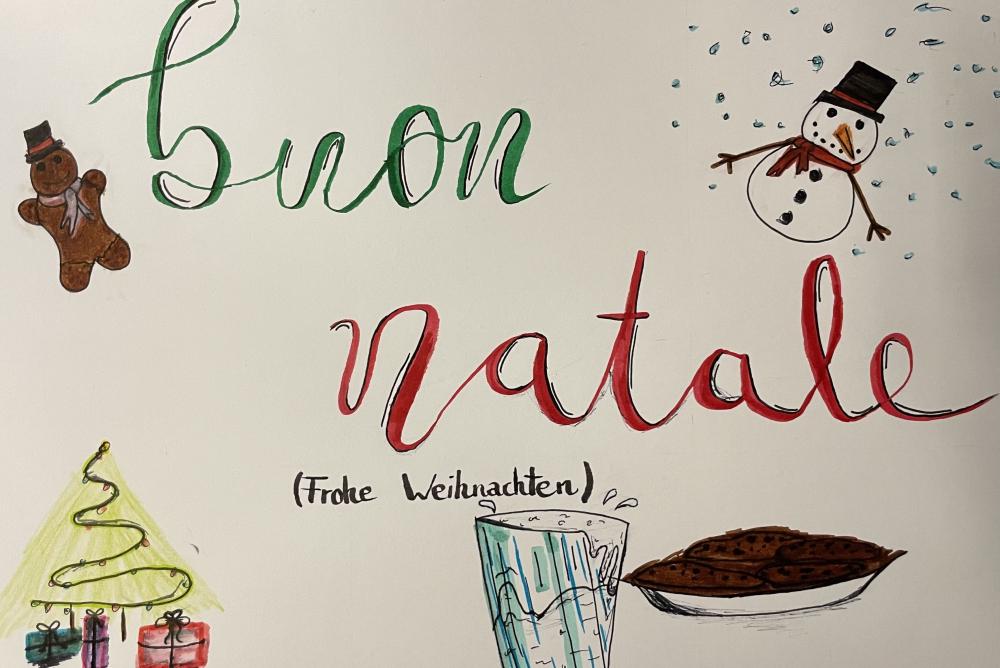 buon
natale
(Frohe Weihnachten)